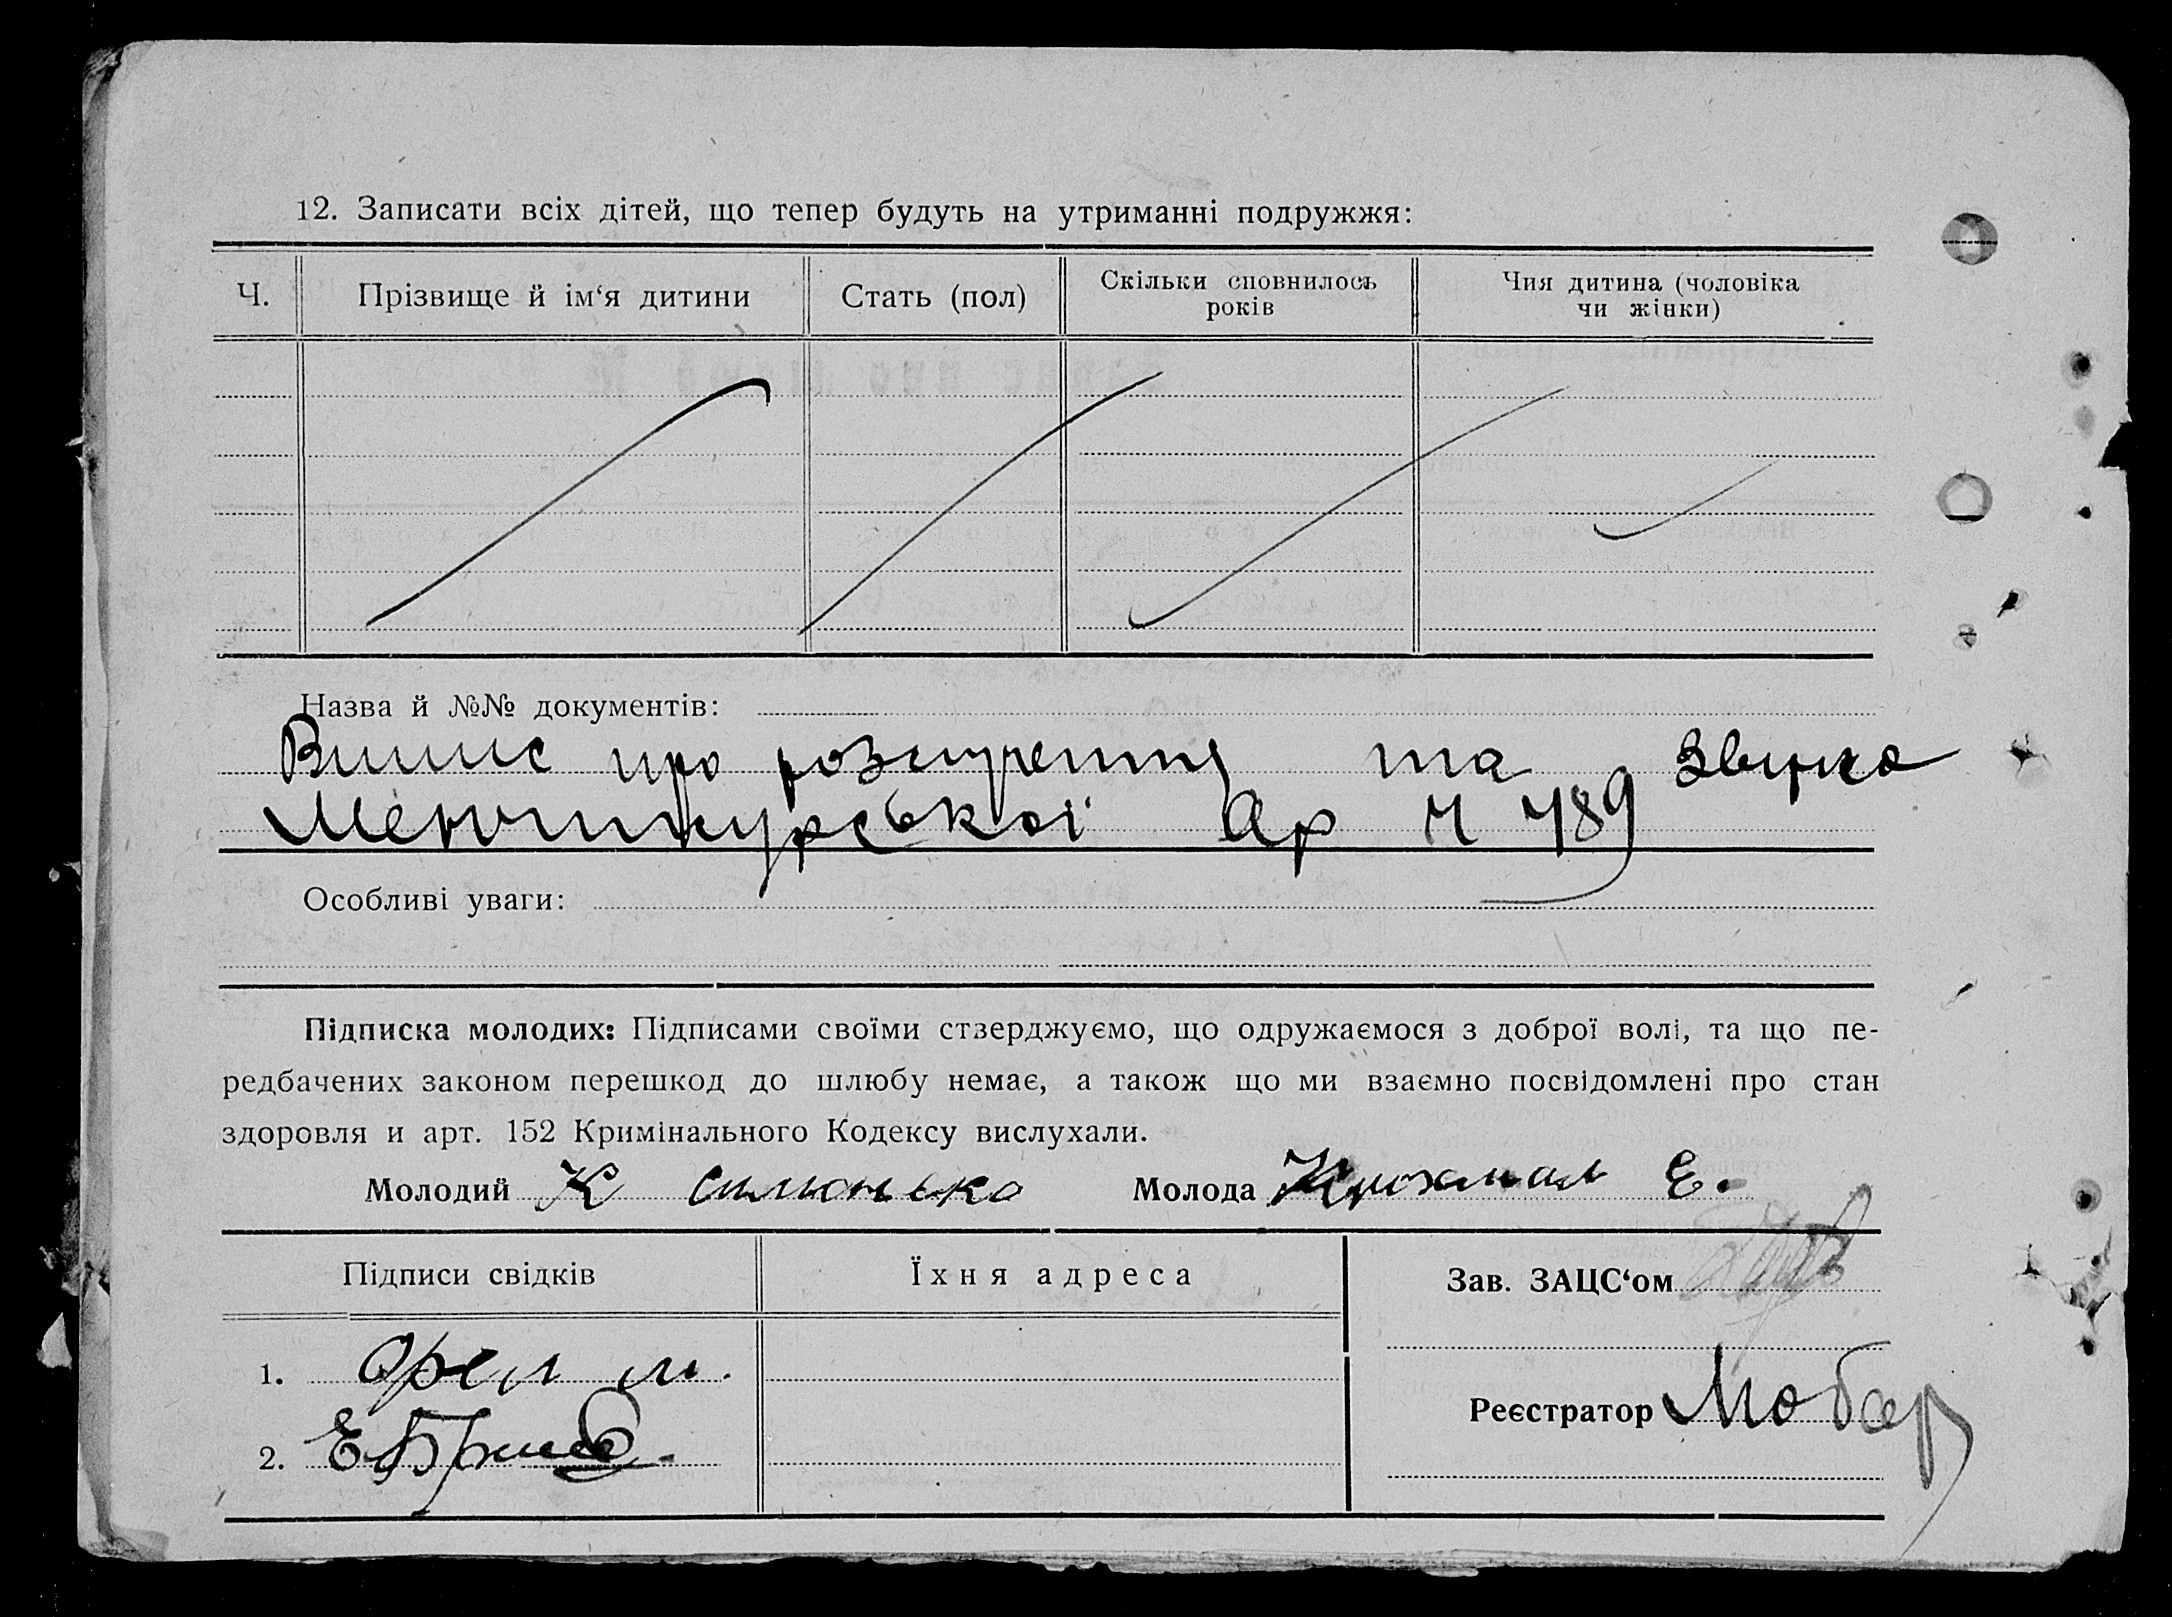 12. Записати всіх дітей, що тепер будуть на утриманні подружжя:
Ч. Прізвище й ім‘я дитини Стать (пол) Скільки сповнилось років Чия дитина (чоловіка чи жінки)
Назва й №№ документів:
Випис про та
Ар Ч 489
Особливі уваги:
Підписка молодих: Підписами своїми стверджуємо, що одружаємося з доброї волі, та що пе-
редбачених законом перешкод до шлюбу немає, а також що ми взаємно посвідомлені про стан
здоровля и арт. 152 Кримінального Кодексу вислухали.
Молодий К Молода Крохмал Е.
Підписи свідків Їхня адреса Зав. ЗАЦС‘ом
1. Орел М.
Реєстратор
2.